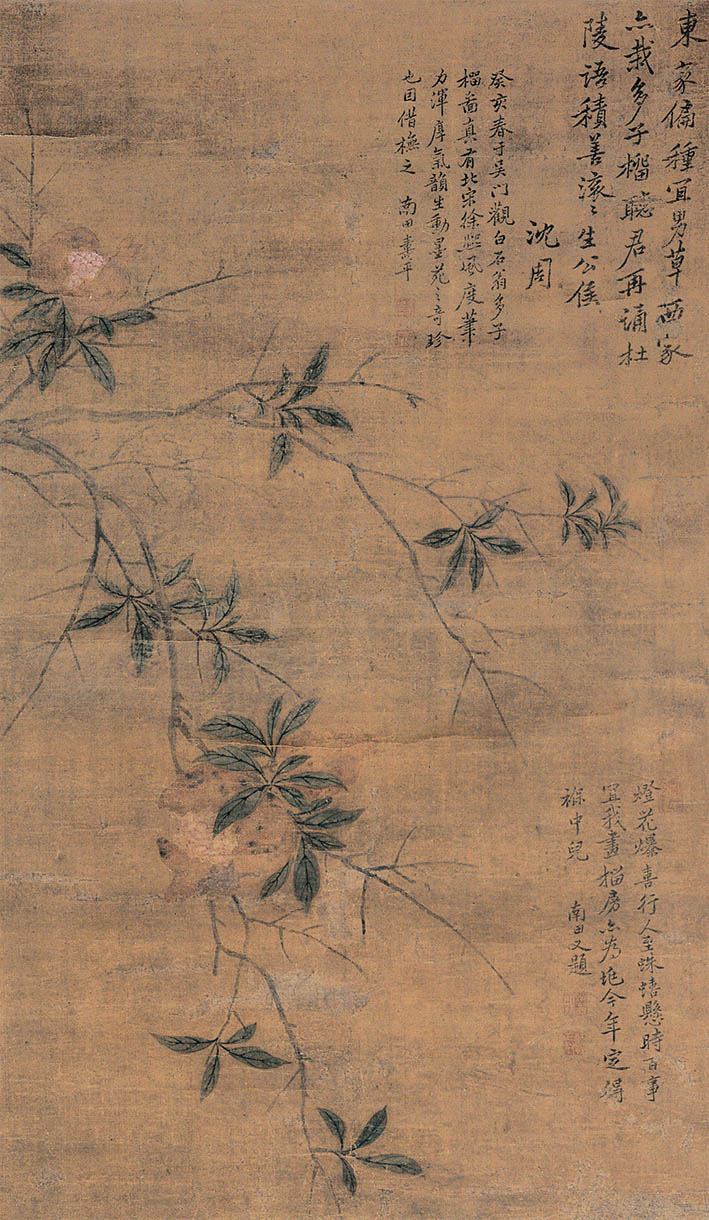 東家偏種宜男草西家
亦栽多子榴聽君再誦杜
陵語積善滾〻生公侯
沈周
癸亥春于吴門觀白石翁多子
榴啚真有北宋徐熙風度筆
力渾厚氣韻生動墨苑之奇珍
也因借橅之 南田壽平
燈花爆喜行人至蛛蟢懸時百事
宜我畫榴房亦為兆今年定得
褓中兒 南田又題